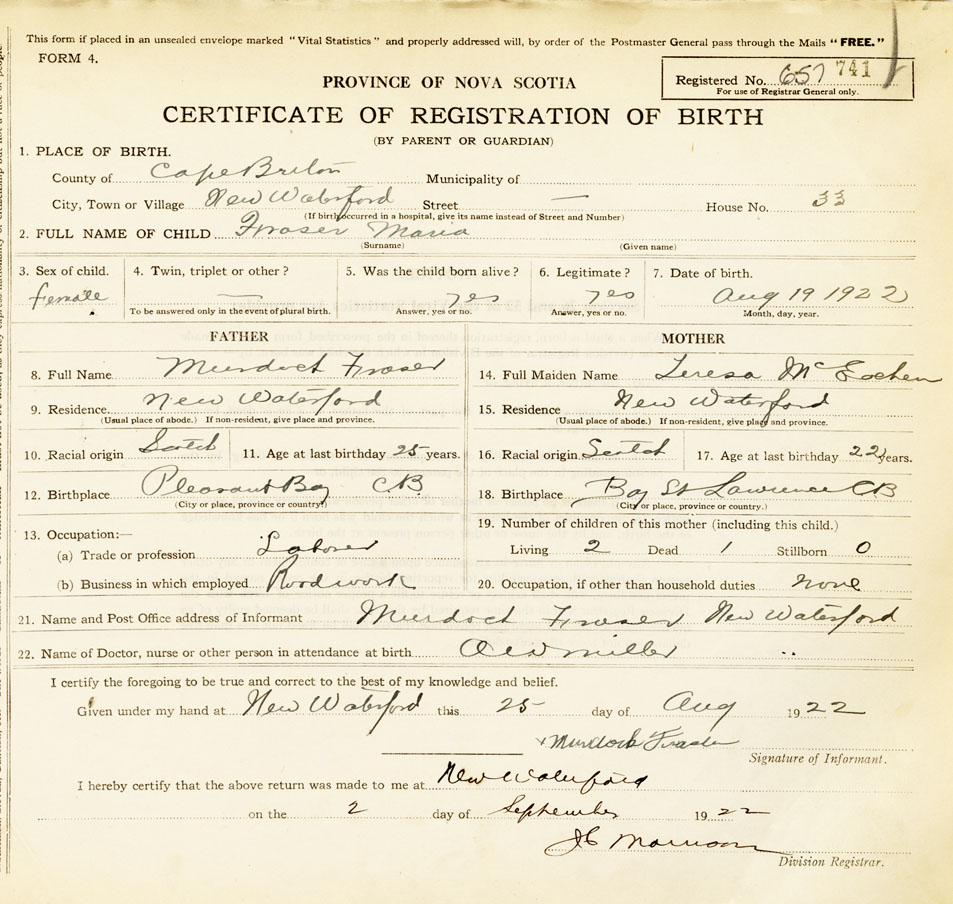 This form if placed in an unsealed envelope marked "Vital Statistics" and properly addressed will, by order of the Postmaster General pass through the Mails "FREE."
FORM 4.
PROVINCE OF NOVA SCOTIA
Registered No. 657 741
For use of Registrar General only.
CERTIFICATE OF REGISTRATION OF BIRTH
(BY PARENT OR GUARDIAN)
1. PLACE OF BIRTH.
County of Cape Breton Municipality of
City, Town or Village New Waterford Street — House No. 33
(If birth occurred in a hospital, give its name instead of Street and Number)
2. FULL NAME OF CHILD Fraser Maria
(Surname) (Given name)
3. Sex of child. 4. Twin, triplet or other? 5. Was the child born alive? 6. Legitimate? 7. Date of birth.
female — yes yes Aug 19 1922
To be answered only in the event of plural birth. Answer, yes or no. Answer, yes or no. Month, day, year.
FATHER MOTHER
8. Full Name Murdoch Fraser 14. Full Maiden Name Teresa McEachern
9. Residence New Waterford 15. Residence New Waterford
(Usual place of abode.) If non-resident, give place and province. (Usual place of abode.) If non-resident, give place and province.
10. Racial origin Scotch 11. Age at last birthday 25 years. 16. Racial origin Scotch 17. Age at last birthday 22 years.
12. Birthplace Pleasant Bay CB 18. Birthplace Bay St Lawrence CB
(City or place, province or country) (City or place, province or country.)
13. Occupation:— 19. Number of children of this mother (including this child.)
(a) Trade or profession Laborer Living 2 Dead 1 Stillborn 0
(b) Business in which employed Roadwork 20. Occupation, if other than household duties none
21. Name and Post Office address of Informant Murdoch Fraser New Waterford
22. Name of Doctor, nurse or other person in attendance at birth Miller
I certify the foregoing to be true and correct to the best of my knowledge and belief.
Given under my hand at New Waterford this 25 day of Aug 1922
Murdock Fraser
Signature of Informant.
I hereby certify that the above return was made to me at New Waterford
on the 2 day of September 1922
JC Morrison
Division Registrar.